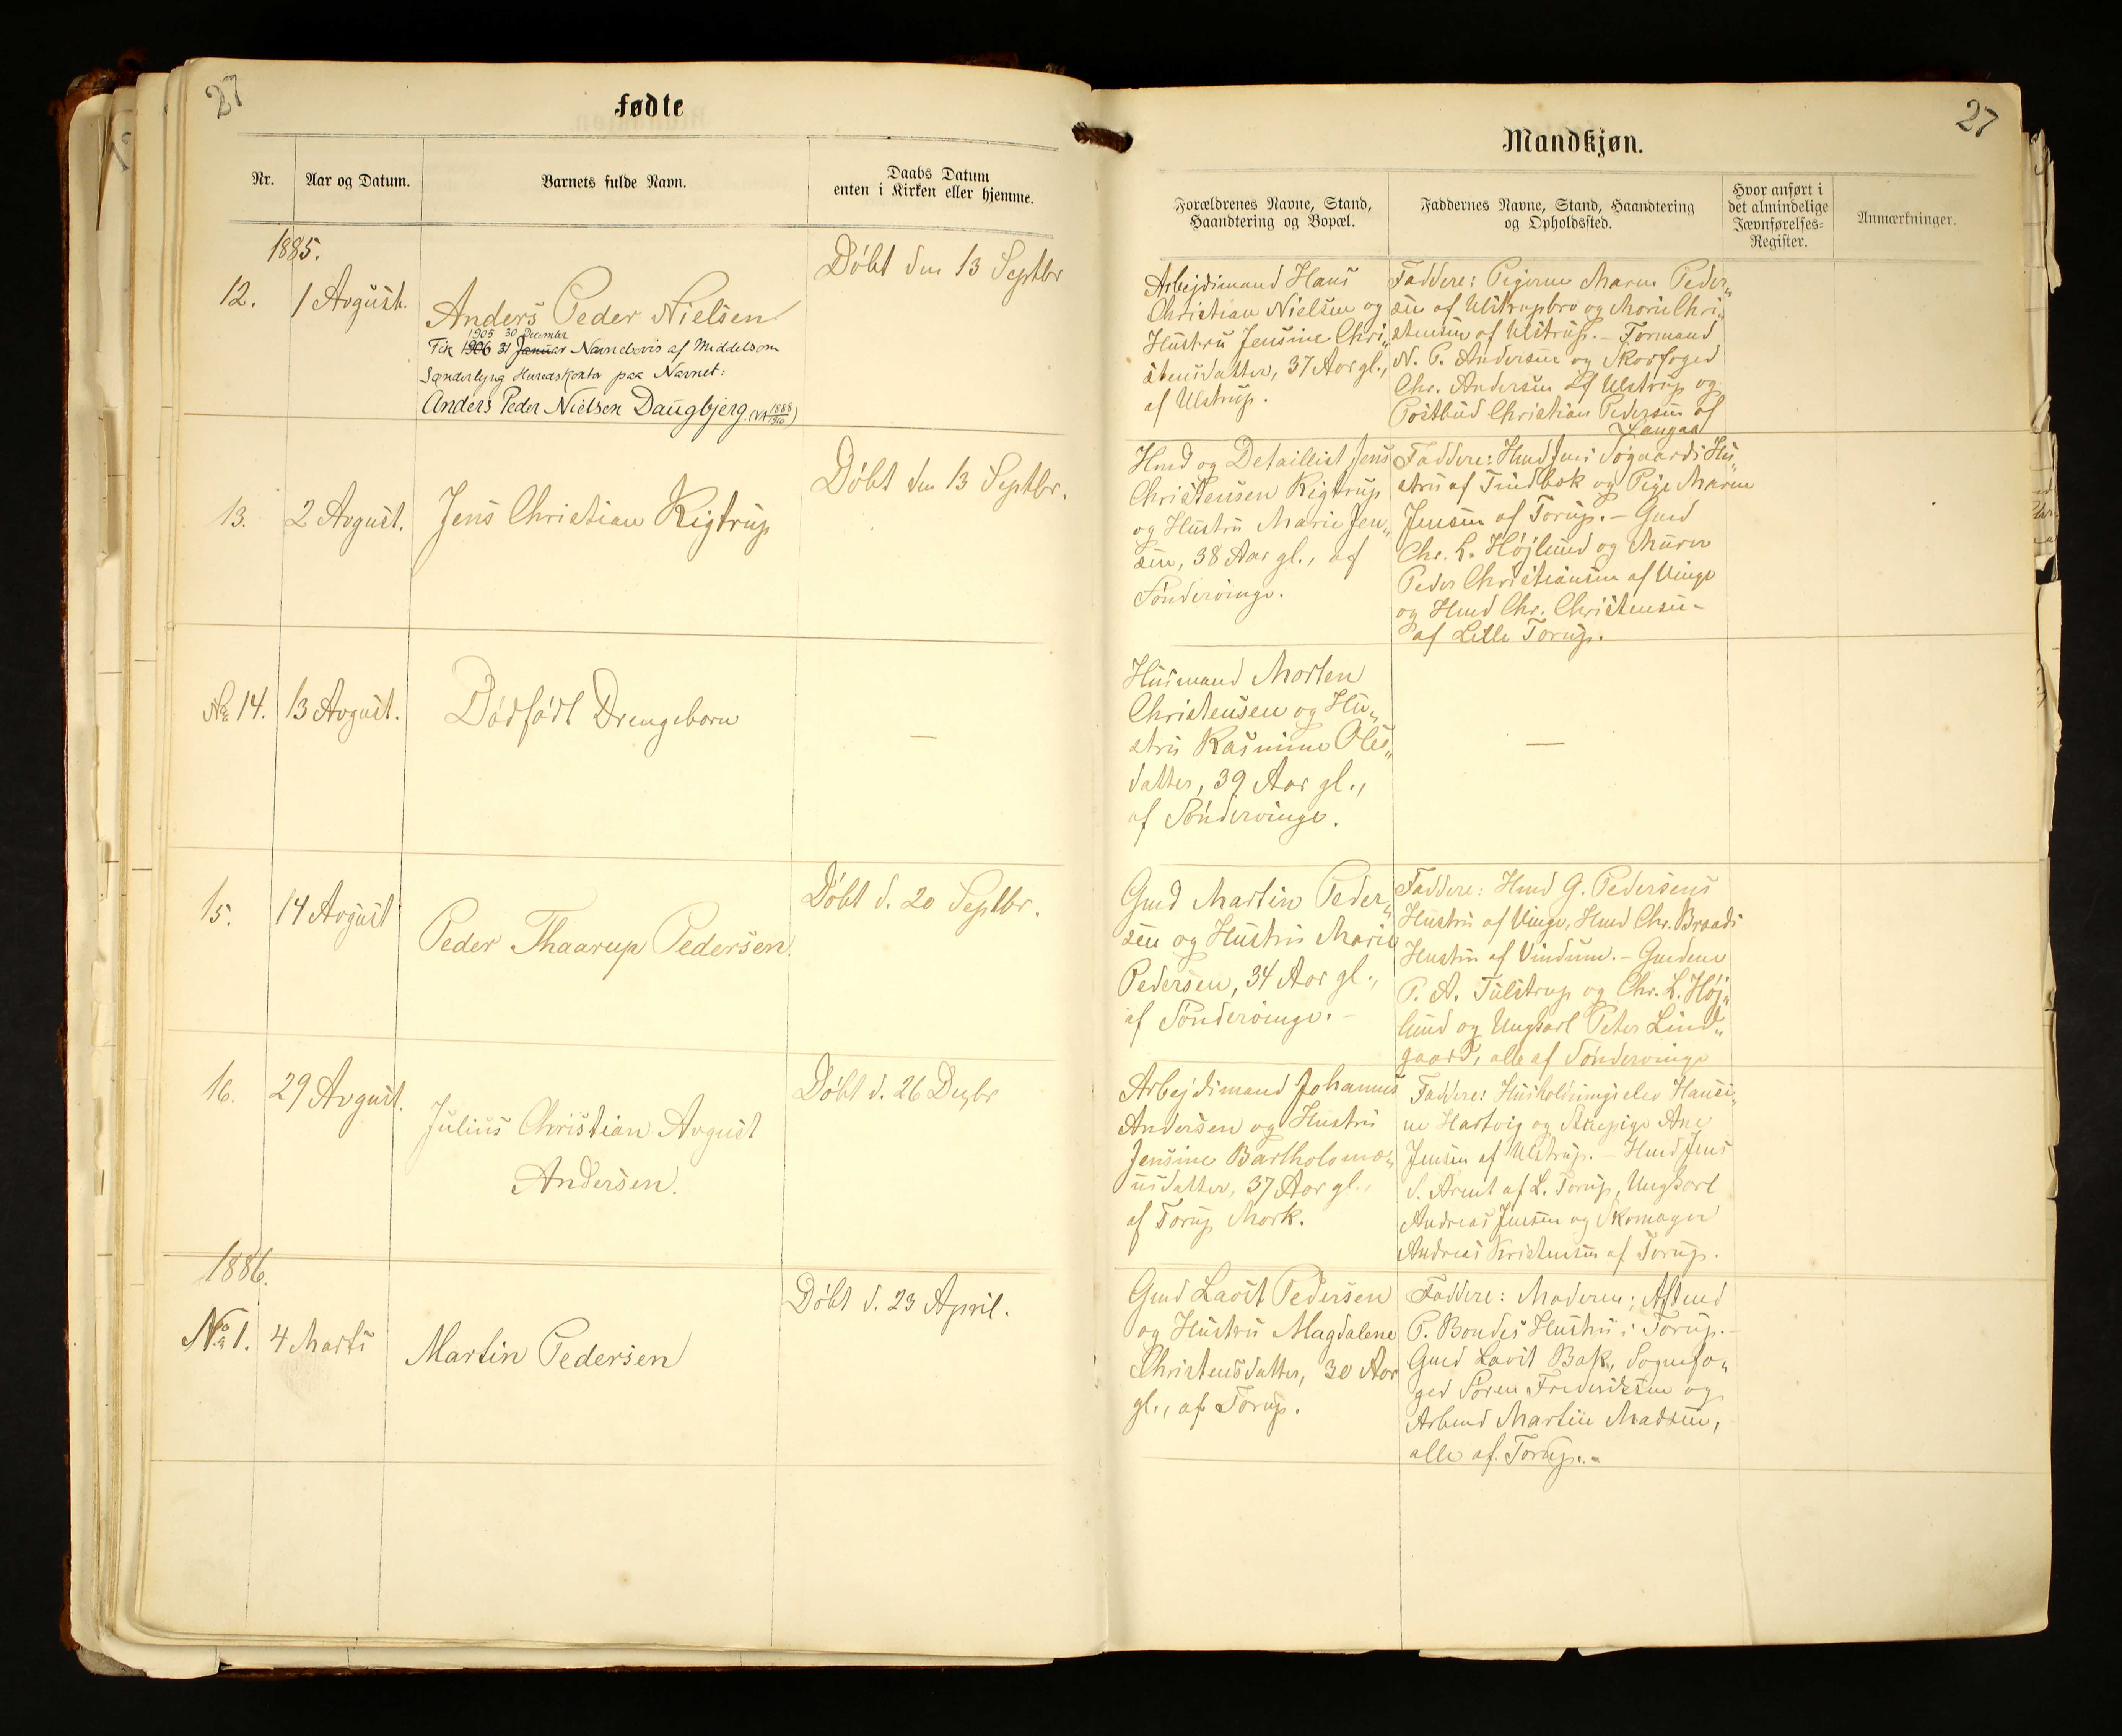 27
Fødte
Nr.
Aar og Datum.
Barnets fulde Navn.
Daabs Datum
enten i Kirken eller hjemme.
1885.
12.
1 Avgust.
Anders Peder Nielsen
1905 30 December
Fik 1906 31 Januar Navnebevis af Middelsom
Sønderlyng Herredskontor paa Navnet:
Anders Peder Nielsen Daugbjerg.
Døbt den 13 Septbr
13.
2 Avgust.
Jens Christian Rigtrup
Døbt den 13 Septbr.
No 14.
13 Avgust.
Dødfødt Drengebarn
—
15.
14 Avgust
Peder Thaarup Pedersen.
Døbt d. 20 Septbr.
16.
29 Avgust.
Julius Christian Avgust
Andersen.
Døbt d. 26 Decbr
1886.
No 1.
4 Marts
Martin Pedersen
Døbt d. 23 April.
27
Mandkjøn.
Forældrenes Navne, Stand,
Haandtering og Bopæl.
Faddernes Navne, Stand, Haandtering
og Opholdssted.
Hvor anført i
det almindelige
Jævnførelses-
Register.
Anmærkninger.
Arbejdsmand Hans
Christian Nielsen og
Hustru Jensine Chri„
stensdatter, 37 Aar gl.,
af Ulstrup.
Faddere: Pigerne Maren Peder„
sen af Ulstrupbro og Maren Chri„
stensen af Ulstrup. – Formand
N. P. Andersen og Skovfoged
Chr. Andersen af Ulstrup og
Postbud Christian Pedersen af
Langaa
Hmd og Detaillist Jens
Christensen Rigtrup
og Hustru Marie Jen„
sen, 38 Aar gl., af
Søndervinge.
Faddere: Hmd Jens Søgaards Hu„
stru af Tindbæk og Pige Maren
Jensen af Torup. – Gmd
Chr. L. Højlund og Murer
Peder Christiansen af Vinge
og Hmd Chr. Christensen –
af Lille Torup.
Husmand Morten
Christensen og Hu„
stru Rasmine Ols„
datter, 39 Aar gl.,
af Søndervinge.
—
Gmd Martin Peder„
sen og Hustru Marie
Pedersen, 34 Aar gl.,
af Søndervinge. –
Faddere: Hmd G. Pedersens
Hustru af Vinge, Hmd Chr. Braads
Hustru af Vindum. – Gmdene
P. A. Tulstrup og Chr. L. Høj„
lund og Ungkarl Peter Lind„
gaard, alle af Søndervinge
Arbejdsmand Johannes
Andersen og Hustru
Jensine Bartholomæ„
usdatter, 37 Aar gl.,
af Torup Mark.
Faddere: Husholdningselev Hansi„
ne Hartvig og Ane
Jensen af Ulstrup. – Hmd Jens
S. Arent af L. Torup, Ungkarl
Andreas Jensen og Skomager
Andreas Kristensen af Torup.
Gmd Lavst Pedersen
og Hustru Magdalene
Christensdatter, 30 Aar
gl., af Torup.
Faddere: Moderen; Aftmd
P. Bondes Hustru i Torup. –
Gmd Lavst Bak, Sognefo„
ged Søren Frederiksen og
Arbmd Martin Madsen,
alle af Torup. –